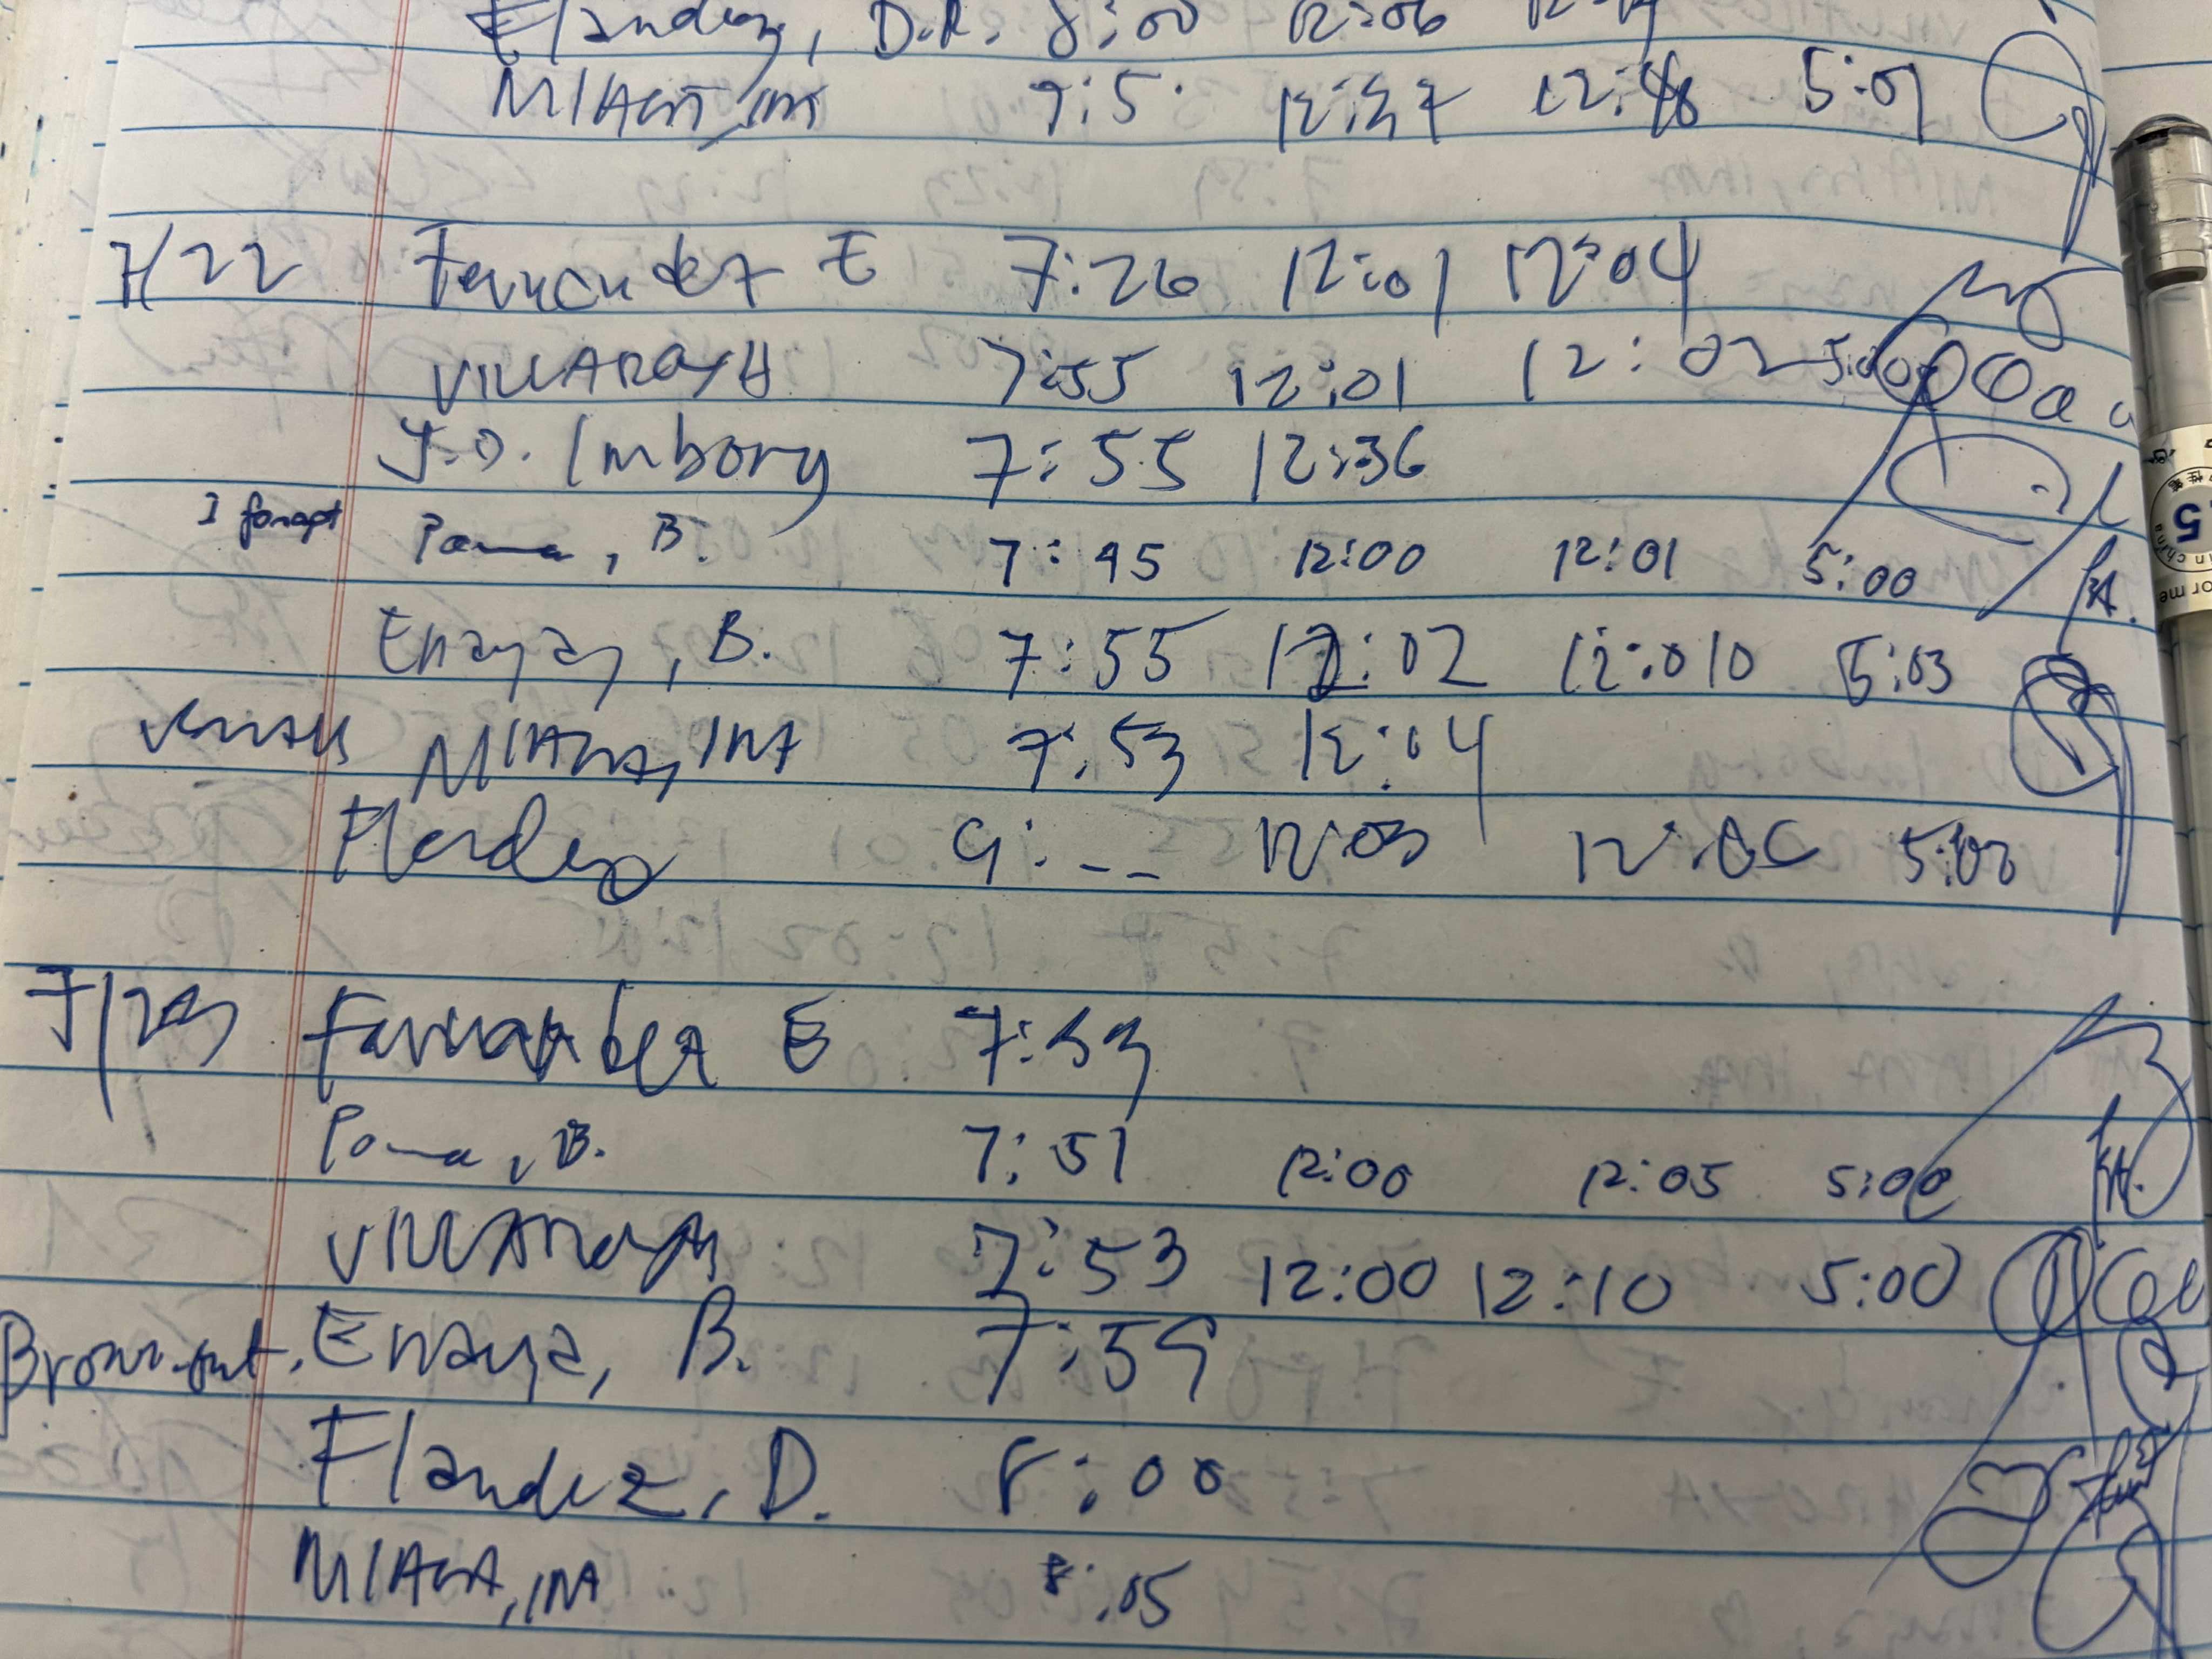 Flandez, D.R. 8:00 12:06
7:5 12:37 12:48 5:01
7/22 Fernandez E 7:26 12:01 12:04
VILLAROYA 7:55 12:01 12:02 5:00
J.D. Imbong 7:55 12:36
I forgot Pama, B. 7:45 12:00 12:01 5:00
Enaya, B. 7:55 12:02 12:010 5:03
MIAGA, INA 7:53 12:04
Flandez 9:-- 12:03 5:02
7/23 Fernandez E 7:53
Pama, B. 7:51 12:00 12:05 5:00
VILLAROYA 7:53 12:00 12:10 5:00
Brown-out. Enaya, B. 7:59
Flandez, D. 8:00
MIAGA, INA 8:05
5
or me